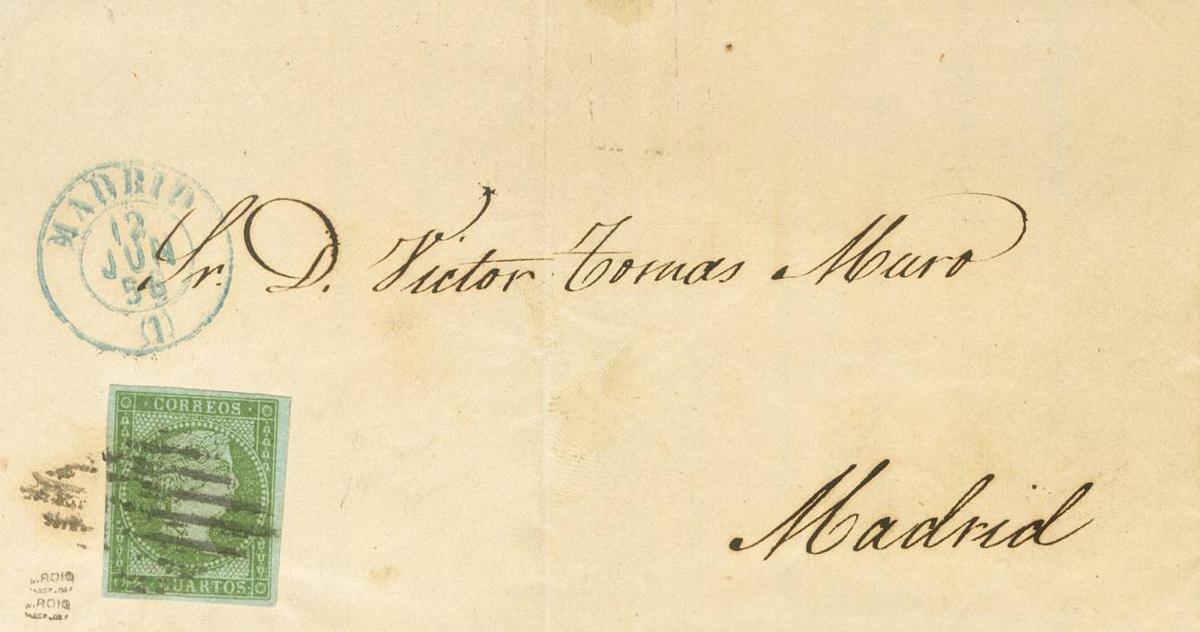 MADRID
12
JUN
56
(1)
Sr. D. Victor Tomas Muro
Madrid
CORREOS
CUARTOS
ROIG
ROIG